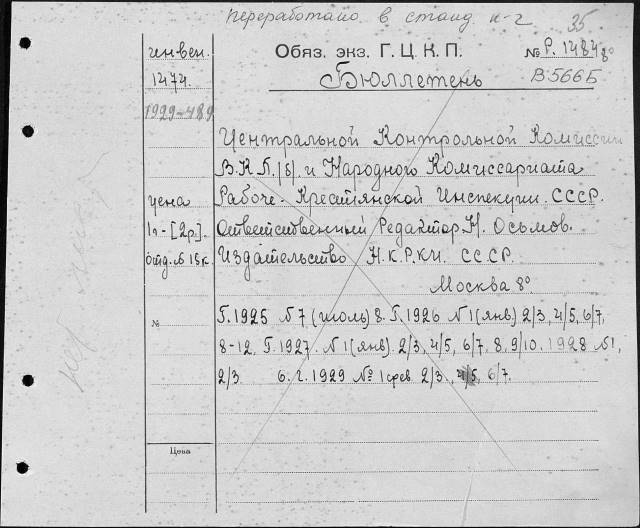 переработано в станд к-г
35
инвен. Обяз. экз. Г.Ц.К.П. № Р. 1484 8°
1474. Бюллетень В566Б
1929-489
Центральной Контрольной Комиссии
В.К.П.(б). и Народного Комиссариата
цена Рабоче-Крестьянской Инспекции СССР.
1р-[2р]. Ответственный Редактор Н. Осьмов.
отд. № 15к. Издательство Н.К.РКИ. СССР.
Москва 8°
№ Г.1925 №7 (июль) 8. Г.1926 №1 (янв) 2/3, 4/5, 6/7,
8-12, Г.1927. №1 (янв). 2/3, 4/5, 6/7, 8, 9/10. 1928 №1,
2/3. 6. г. 1929 № 1 фев 2/3., 4/5, 6/7.
Цена